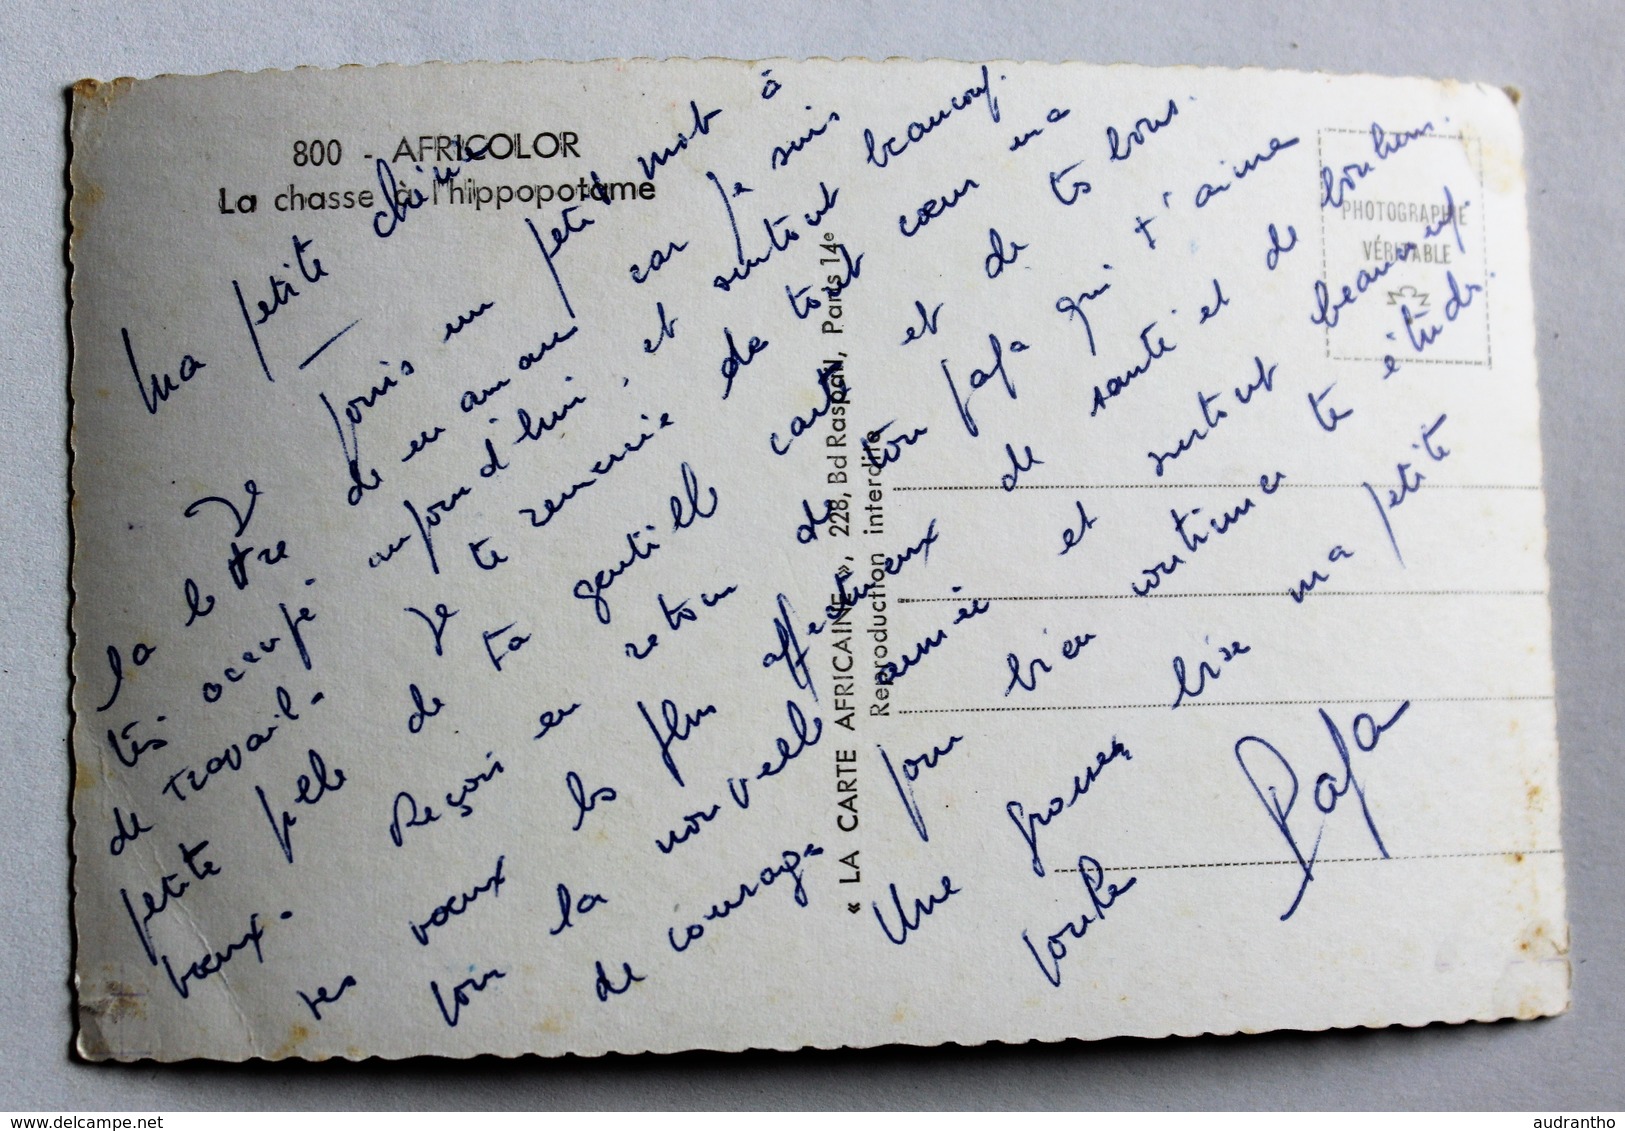 800 - AFRICOLOR
La chasse à l'hippopotame
Ma petite chérie
Je joins un petit mot à
la lettre de maman car je suis
très occupé aujourd'hui, et surtout beaucoup
de travail. Je te remercie de tout cœur ma
petite de ta gentille carte et de tes bons
vœux. Reçois en retour de ton papa qui t'aime
ses vœux les plus affectueux de santé et de bonheur
pour la nouvelle année et surtout beaucoup
de courage pour bien continuer tes études.
Une grosse bise ma petite
Papa
« LA CARTE AFRICAINE », 228, Bd Raspail, Paris 14e
Reproduction interdite
PHOTOGRAPHIE
VÉRITABLE
audrantho